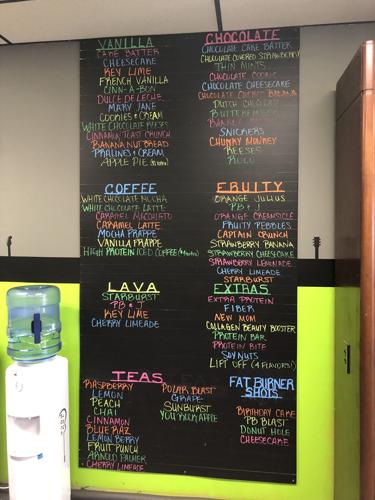 VANILLA
CAKE BATTER
CHEESECAKE
KEY LIME
FRENCH VANILLA
CINN-A-BON
DULCE DE LECHE
MARY JANE
COOKIES & CREAM
WHITE CHOCOLATE REESES
CINNAMON TOAST CRUNCH
BANANA NUT BREAD
PRALINES & CREAM
APPLE PIE
CHOCOLATE
CHOCOLATE CAKE BATTER
CHOCOLATE COVERED STRAWBERRY
THIN MINTS
CHOCOLATE COOKIE
CHOCOLATE CHEESECAKE
CHOCOLATE COVERED BANANA
DUTCH CHOCOLATE
BUTTERFINGER
SNICKERS
CHUNKY MONKEY
REESES
ROLO
COFFEE
WHITE CHOCOLATE MOCHA
WHITE CHOCOLATE LATTE
CARAMEL MACCHIATO
CARAMEL LATTE
MOCHA FRAPPE
VANILLA FRAPPE
HIGH PROTEIN ICED COFFEE
FRUITY
ORANGE JULIUS
PB & J
ORANGE CREAMSICLE
FRUITY PEBBLES
CAPTAIN CRUNCH
STRAWBERRY BANANA
STRAWBERRY CHEESECAKE
STRAWBERRY LEMONADE
CHERRY LIMEADE
STARBURST
LAVA
STARBURST
PB & J
KEY LIME
CHERRY LIMEADE
EXTRAS
EXTRA PROTEIN
FIBER
NEW MOM
COLLAGEN BEAUTY BOOSTER
PROTEIN BAR
PROTEIN BITE
SOY NUTS
LIFT OFF (4 FLAVORS!)
TEAS
RASPBERRY
LEMON
PEACH
CHAI
CINNAMON
BLUE RAZ
LEMON BERRY
FRUIT PUNCH
ARNOLD PALMER
CHERRY LIMEADE
POLAR BLAST
GRAPE
SUNBURST
APPLE
FAT BURNER
SHOTS
BIRTHDAY CAKE
PB BLAST
DONUT HOLE
CHEESECAKE